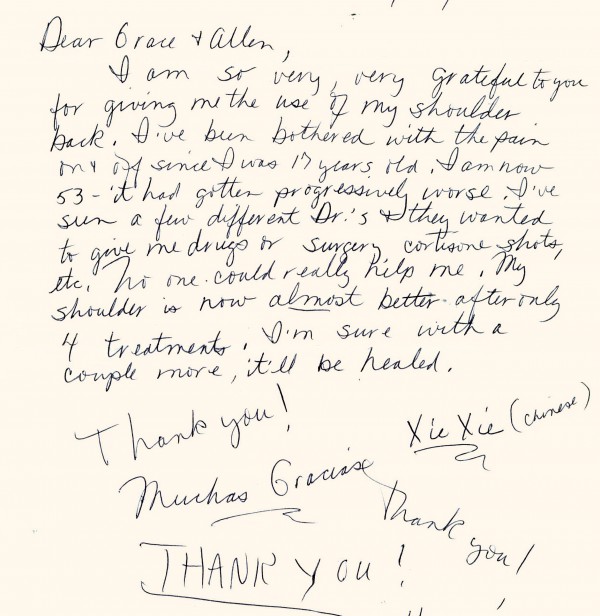 Dear Grace & Allen,
I am so very, very grateful to you
for giving me the use of my shoulder
back. I've been bothered with the pain
on & off since I was 17 years old. I am now
53 - it had gotten progressively worse. I've
seen a few different Dr.'s & they wanted
to give me drugs or surgery, cortisone shots,
etc. No one could really help me. My
shoulder is now almost better after only
4 treatments. I'm sure with a
couple more, it'll be healed.
Thank you!
Xie Xie (Chinese)
Muchas Gracias
Thank you!
THANK YOU!